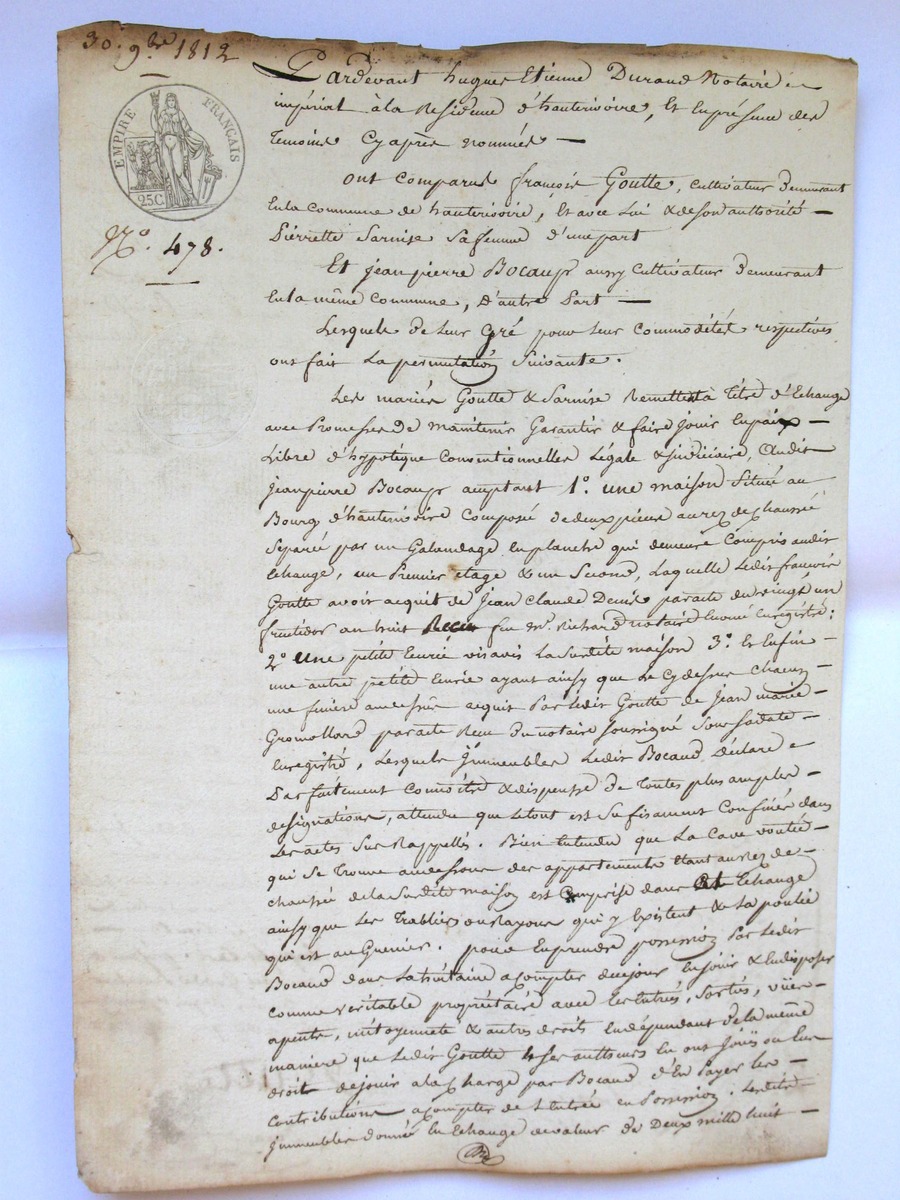 30. 9bre 1812
EMPIRE FRANÇAIS
25C.
No. 478.
Pardevant hugues Etienne Durand Notaire
impérial à la Residence d'hauterivoire, Et En présence des
Temoins Cy après nommés —
Ont comparus françois Goutte, cultivateur Demeurant
En la Commune de hauterivoire, Et avec Lui & de son authorité —
Pierrette Sarnise Sa femme d'une part
Et jean pierre Bocaup aussy Cultivateur Demeurant
En la même Commune, D'autre Part —
Lesquels de Leur Gré pour Leur Commodités respectives
ont fait La permutation Suivante.
Les mariés Goutte & Sarnise Remettent à Titre d'Echange
avec Promesse de maintenir Garantir & faire jouir En paix —
Libre d'hypotéque Conventionnelles Légale & judiciaire, Audit
jean pierre Bocaup acceptant 1o. une maison Située au
Bourg d'hauterivoire Composé de deux pieces au rez de chaussé
Separée par un Galandage En planche qui demeure Compris audit
Echange, un Premier étage & un Second, Laquelle Ledit françois
Goutte avoir acquit de Jean Claude Denis par acte du vingt un
fructidor an huit feu Mr. Richard notaire Enregistré:
2o une petite Ecurie vis avis La Susdite maison 3o. Et Enfin —
une autre petite Ecurie ayant ainsy que Le Cy dessus Chacun —
une feniere au dessus acquis Par Ledit Goutte de Jean marie —
Gromollard par acte Recu Du notaire soussigné Sous Sa date —
Enregistré, Lesquels Jmmeubles Ledit Bocaud Déclare
Parfaitement Connoitre & dispense de Toutes plus amples —
designations, attendu que Letout est Sufisament Confinés dans
Les actes Sus Rappellés. Bien Entendu que La Cave voutée —
qui Se Trouve au dessous des appartements Etant au rez de —
chaussée de la Susdite maison est Comprise dans Cet Echange
ainsy que Les Trabliers ou Rayons qui y Existent & La poulie
qui est au Grenier. pour En prendre possession Par Ledit
Bocaud dans La huitaine a compter de ce jour En jouir & En disposer
Comme veritable propriétaire avec Les Entrés, Sortis,
apents, mitoyenneté & autres droits En dépendant de la même
maniere que Ledit Goutte & Ses autheurs En ont jouis ou Eur
droit de jouir a la Charge par Bocaud d'En Payer Les —
Contributions a compter de l'Entrée en Possession. Lesdits
Jmmeubles donnés En Echange de valeur de Deux mille huit —